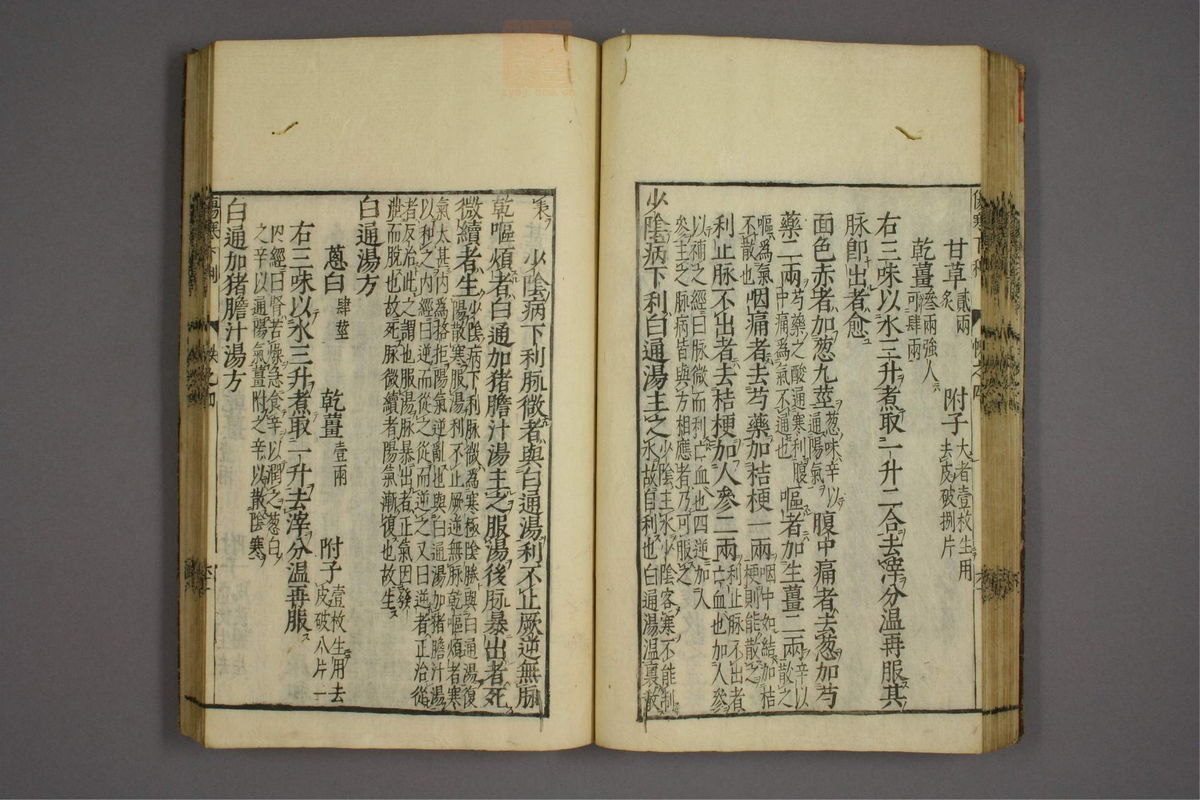 甘草貳兩炙 附子大者壹枚生用去皮破捌片
乾薑叄兩強人可肆兩
右三味以水三升煮取一升二合去滓分溫再服其
脉卽出者愈
面色赤者加葱九莖葱味辛以通陽氣腹中痛者去葱加芍
藥二兩芍藥之酸通寒利腹中痛爲氣不通也嘔者加生薑二兩辛以散之
嘔爲氣不散也咽痛者去芍藥加桔梗一兩咽中如結加桔梗則能散之
利止脉不出者去桔梗加人參二兩利止脉不出者亡血也加人參
以補之經曰脉微而利亡血也四逆加人
參主之脉病皆與方相應者乃可服之
少陰病下利白通湯主之少陰主水少陰客寒不能制水故自利也白通湯溫裏散
寒
少陰病下利脉微者與白通湯利不止厥逆無脉
乾嘔煩者白通加猪膽汁湯主之服湯後脉暴出者死
微續者生少陰病下利脉微爲寒極陰勝與白通湯復陽散寒服湯利不止厥逆無脉乾嘔煩者寒
氣太甚内爲格拒陽氣逆亂也與白通湯加猪膽汁湯
以和之内經曰逆而從之從而逆之又曰逆者正治從
者反治此之謂也服湯脉暴出者正氣因發
泄而脫也故死脉微續者陽氣漸復也故生
白通湯方
蔥白肆莖 乾薑壹兩 附子壹枚生用去皮破八片
右三味以水三升煮取一升去滓分溫再服
内經曰腎苦燥急食辛以潤之葱白
之辛以通陽氣薑附之辛以散陰寒
白通加猪膽汁湯方
傷寒下利
帙之四